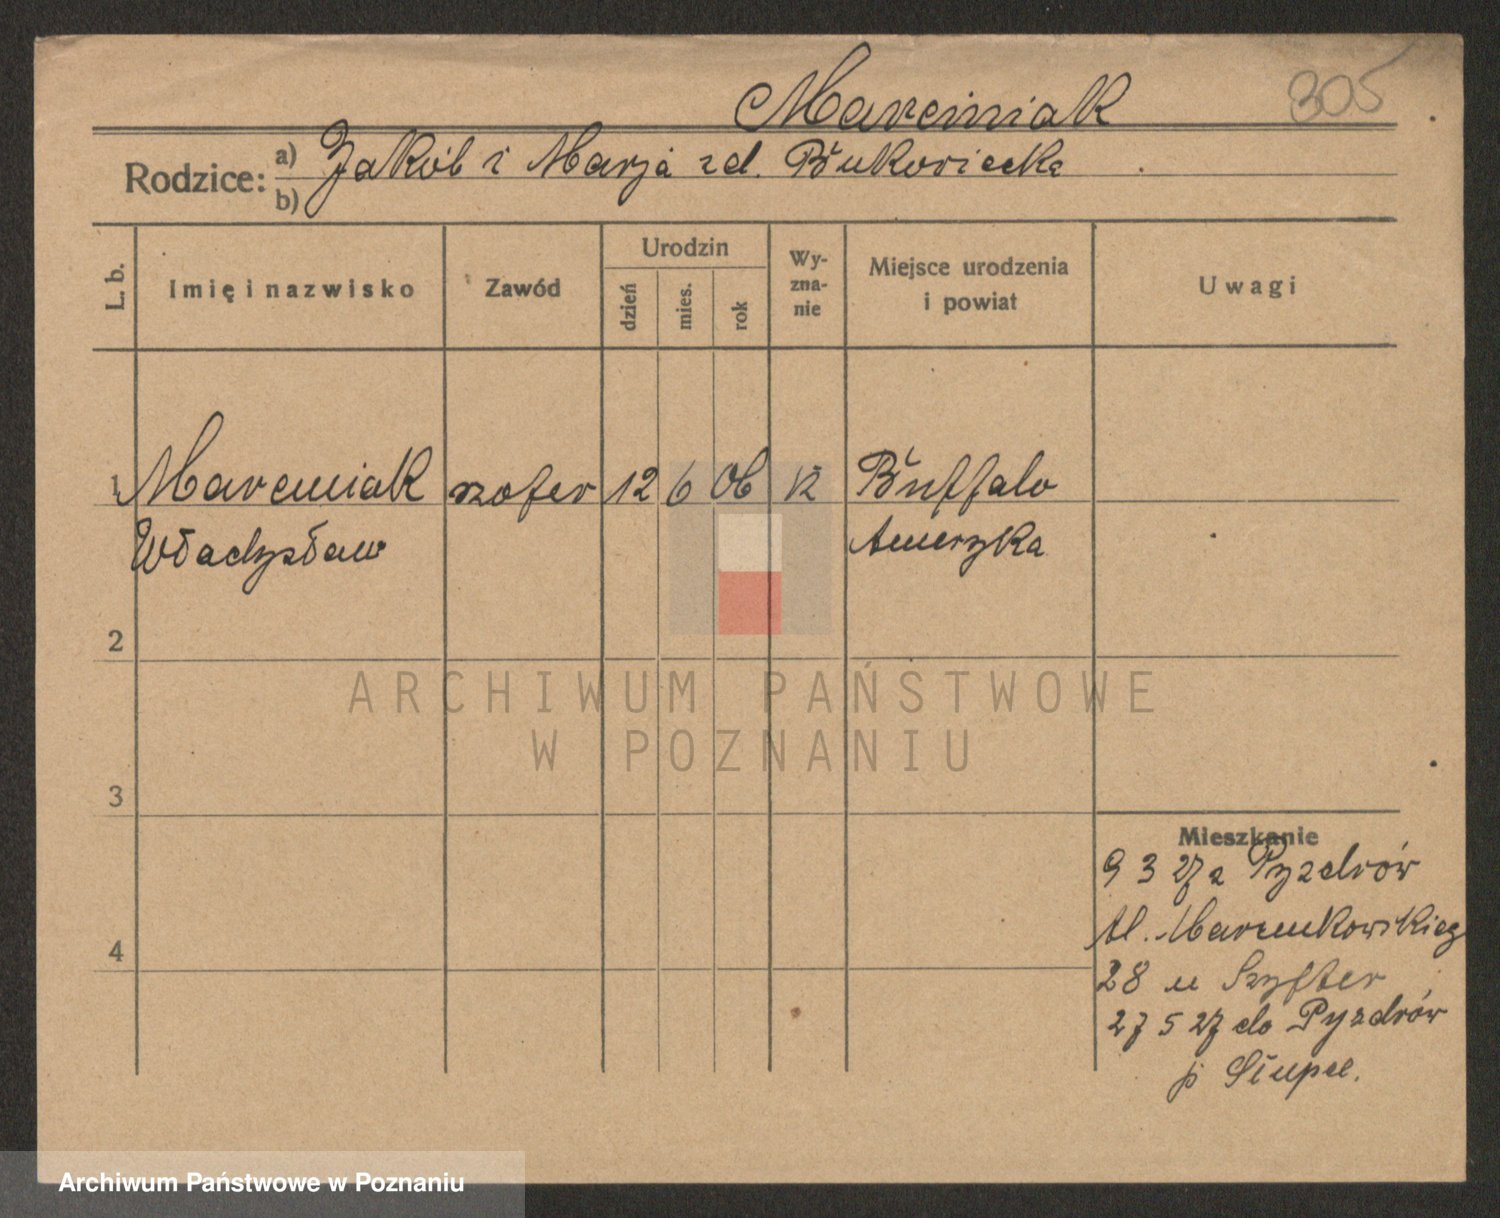 Marciniak 305
Rodzice: a) Jakób i Marja zd. Bukowiecka
b)
L. b. Imię i nazwisko Zawód Urodzin dzień mies. rok Wy-zna-nie Miejsce urodzenia i powiat Uwagi
1 Marciniak szofer 12 6 06 k Buffalo
Władysław Ameryka
2
ARCHIWUM PAŃSTWOWE
W POZNANIU
3
Mieszkanie
9 3 27 z Pyzdrów
Al. Marcinkowskieg
4
28 u Szyfter
27 5 27 do Pyzdrów
p Słupce.
Archiwum Państwowe w Poznaniu